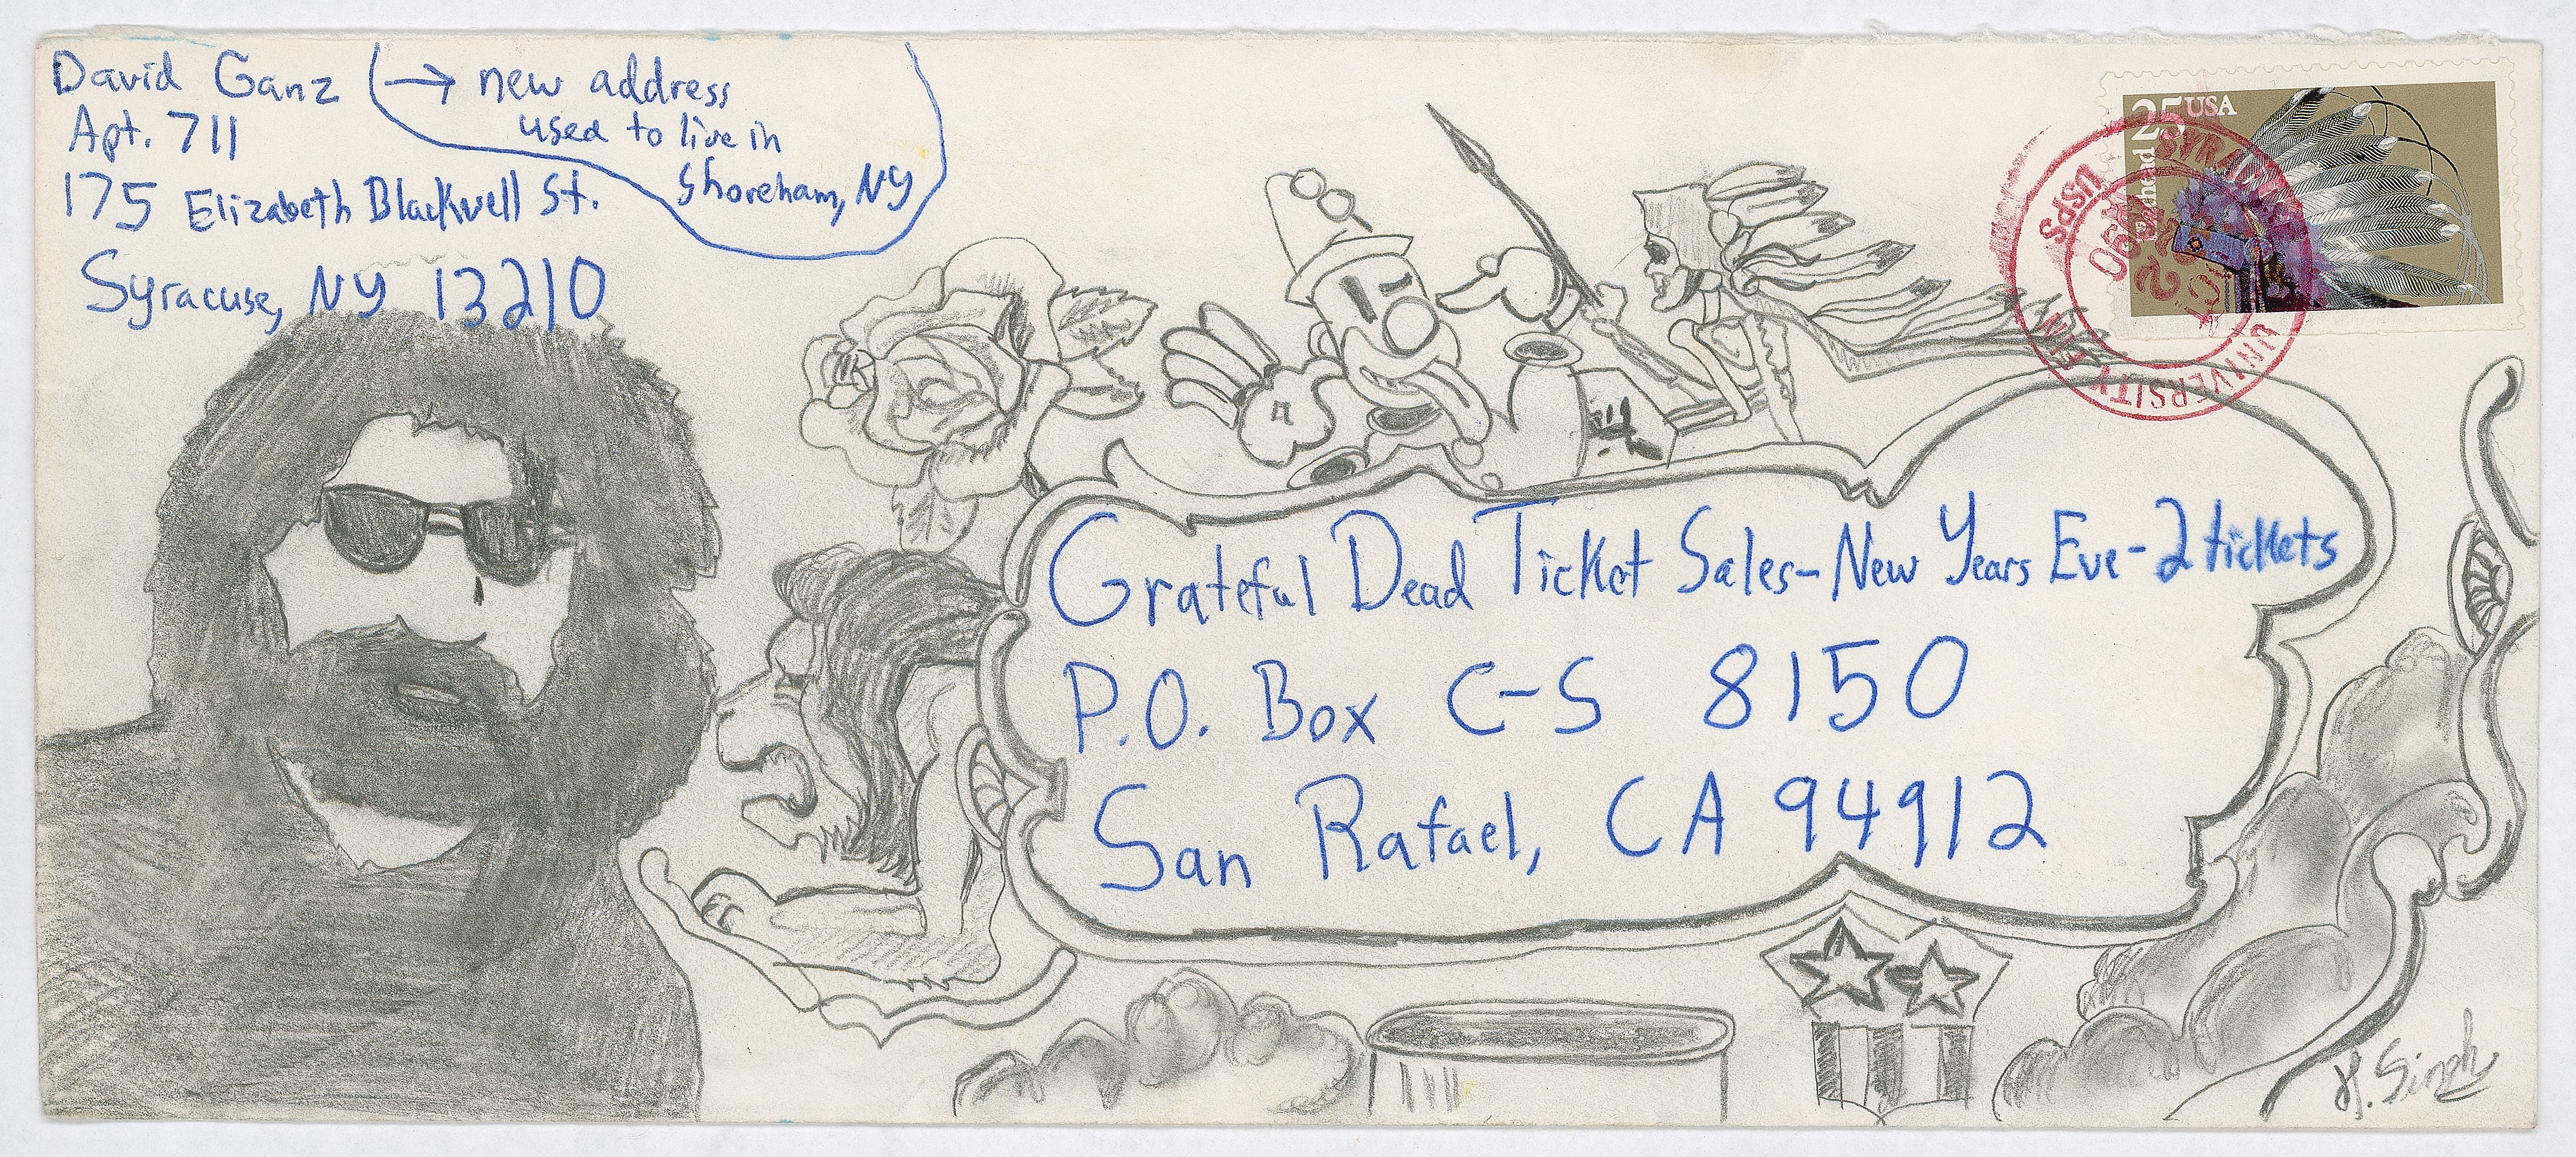 David Ganz → new address
Apt. 711 used to live in
175 Elizabeth Blackwell St. Shoreham, NY
Syracuse, NY 13210
25 USA
USPS
SYRA
1990
UNIVERSITY
Grateful Dead Ticket Sales-New Years Eve-2 tickets
P.O. Box C-S 8150
San Rafael, CA 94912
H. Singh